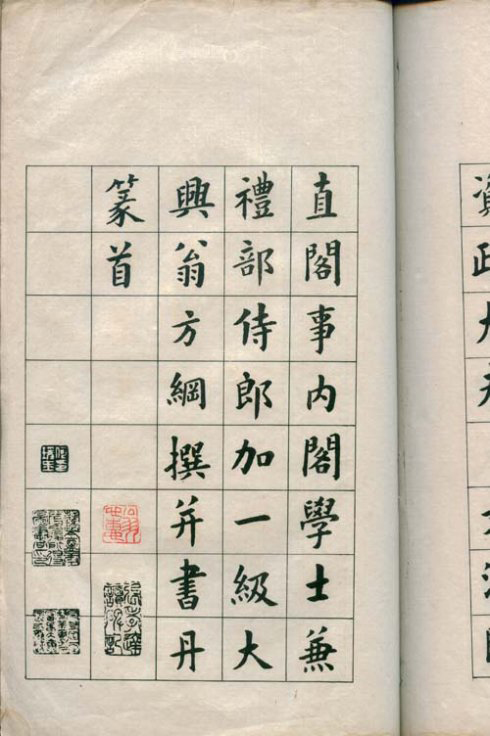 直閣事内閣學士兼
禮部侍郎加一級大
興翁方綱撰并書丹
篆首